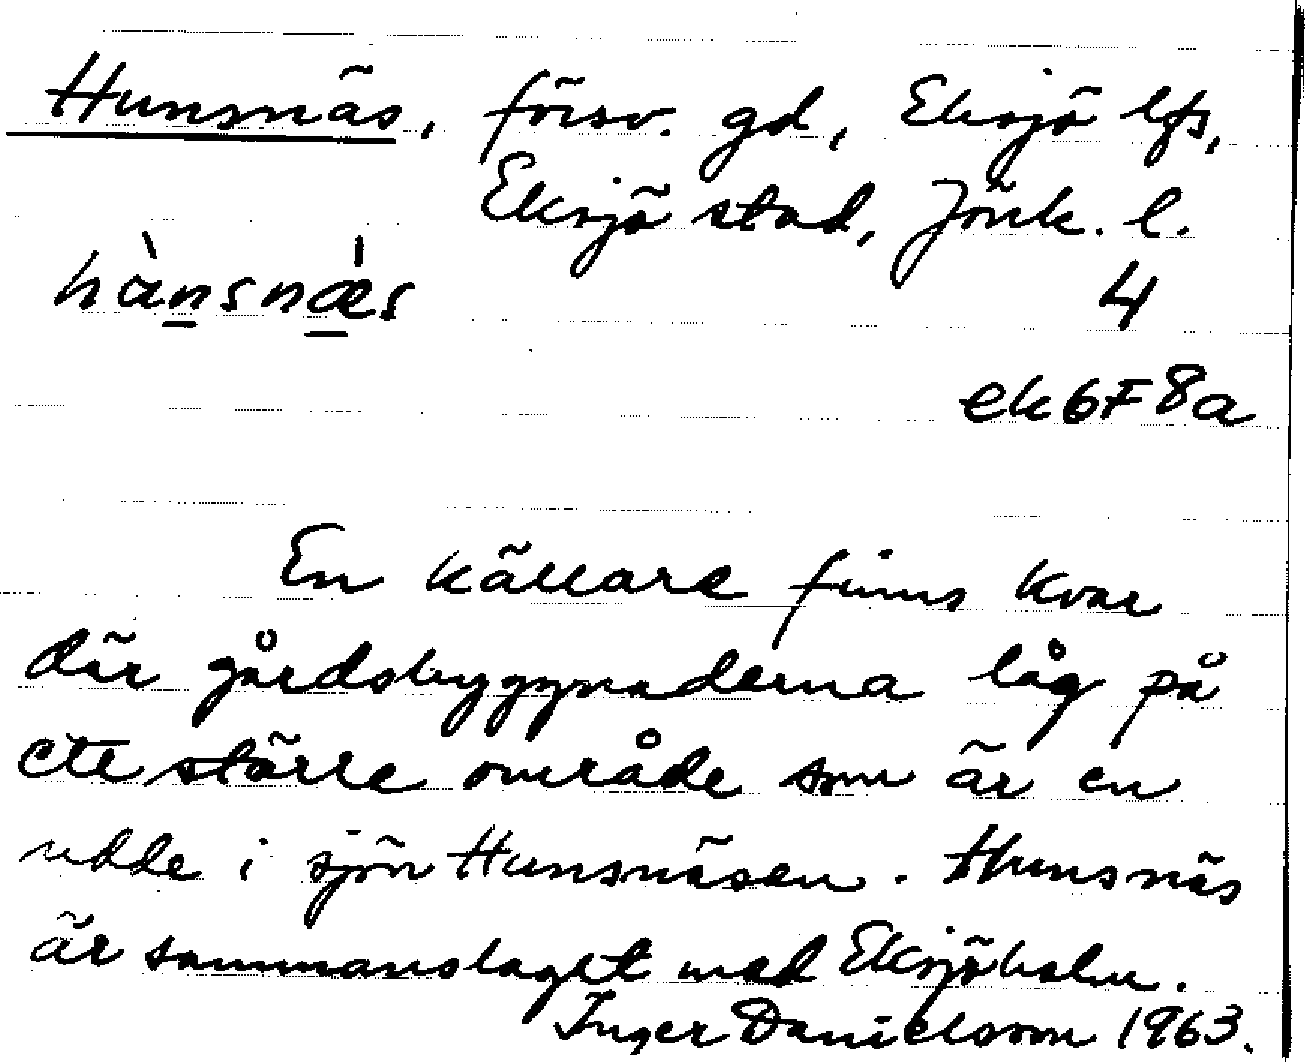 Hunsnäs, försv. gd, Eksjö lfs,
Eksjö stad, Jönk. l.
hànsnæ̀s 4
ek6F8a
En källare finns kvar
där gårdsbyggnaderna låg på
ett större område som är en
udde i sjön Hunsnäsen. Hunsnäs
är sammanslaget med Eksjöholm.
Inger Danielsson 1963.